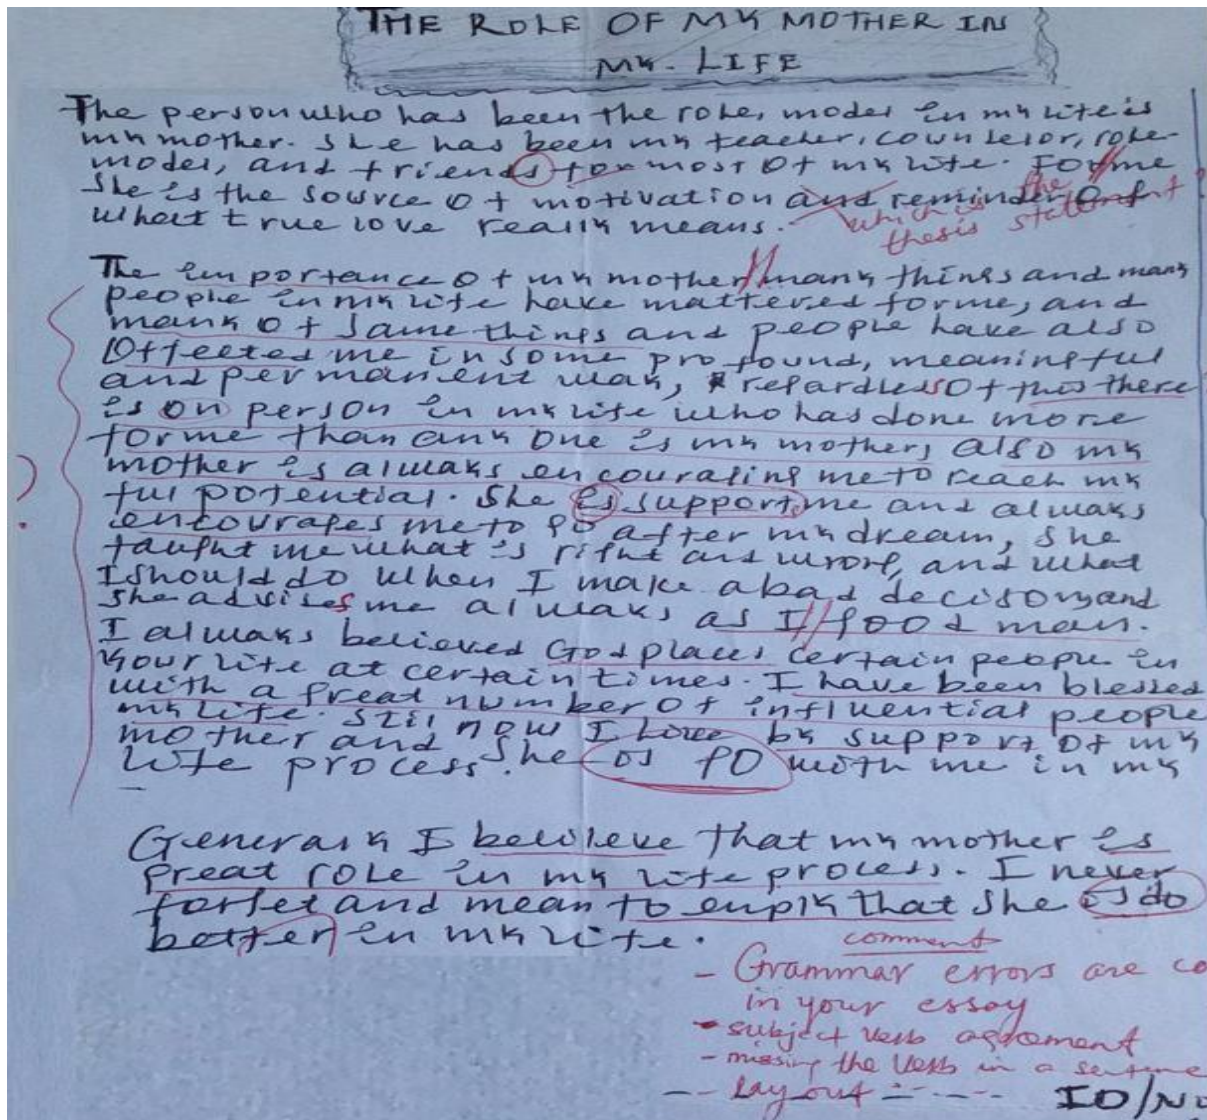 THE ROLE OF MY MOTHER IN
MY. LIFE
The person who has been the role, model in my life is
my mother. She has been my teacher, counselor, role-
model, and friends for most of my life. For me
she is the source of motivation and reminder of
what true love really means.
which is the
thesis statement ?
The importance of my mother many things and many
people in my life have mattered for me, and
many of same things and people have also
offected me in some profound, meaningful
and permanent way, regardless of this there
is on person in my life who has done more
for me than any one is my mother, also my
mother is always encouraging me to reach my
ful potential. She is support me and always
encourages me to go after my dream, she
taught me what is right and wrong, and what
I should do when I make a bad decison, and
she advises me always as I good man.
I always believed God places certain people in
your life at certain times. I have been blessed
with a great number of influential people
my life. Stil now I live by support of my
mother and she is go with me in my
life process.
?
Generaly I beleive that my mother is
great role in my life process. I never
forget and mean to that she is do
better in my life.
comment
- Grammar errors are co
in your essay
- subject verb agreement
- missing the verb in a sentence
- Lay out - - - -
ID/No